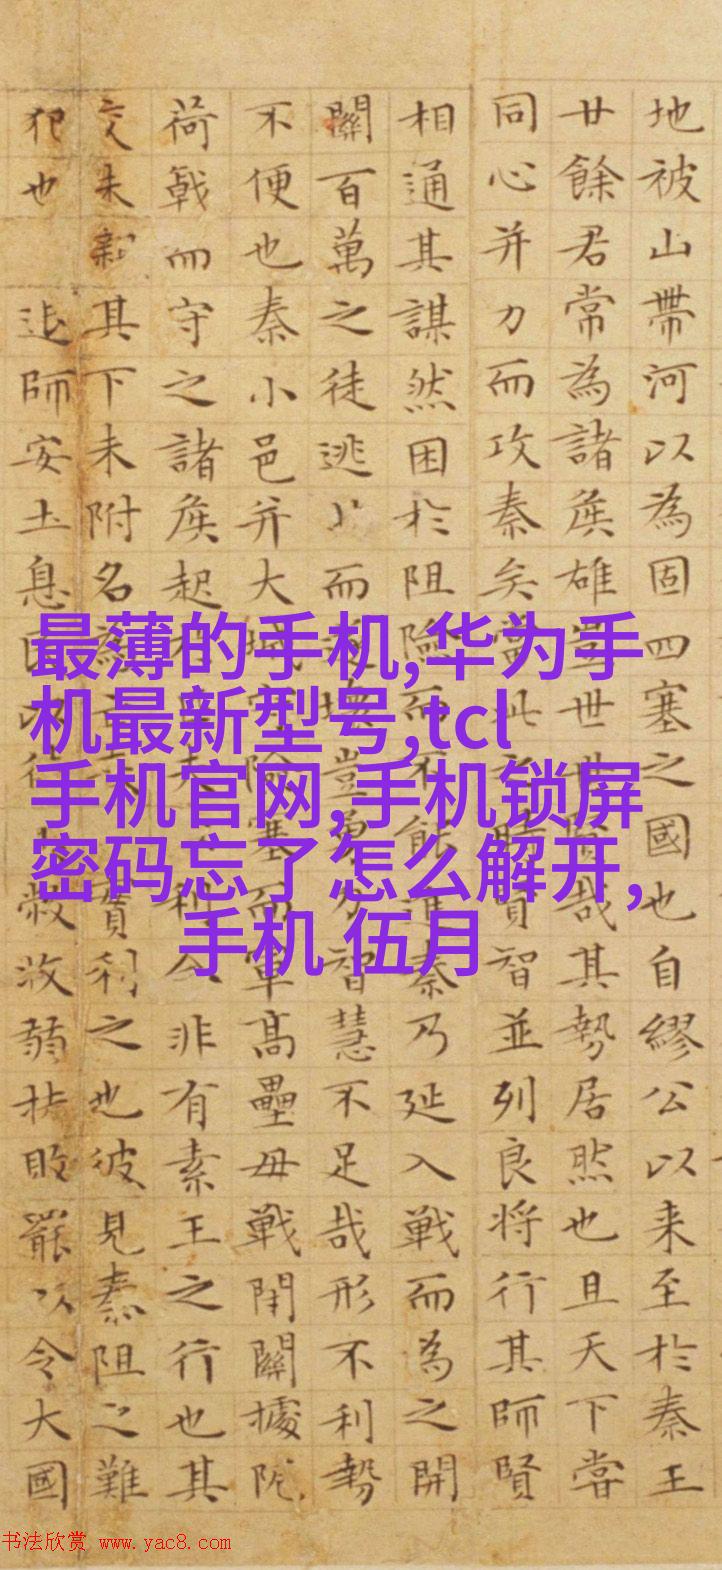 地被山帶河以為固四塞之國也自繆公以来至於秦王
廿餘君常為諸侯雄豈世世賢哉其勢居然也且天下甞
同心并力而攻秦矣當此之時賢智並列良将行其師賢
相通其謀然困於阻險而不能進秦乃延入戦而為之開
關百萬之徒逃而遂壞豈勇力智慧不足哉形不利勢
不便也秦小邑并大城守險塞而軍高壘毋戦閇關據阨
荷戟而守之諸侯起於夫利合非有素王之行也其
交未親其下未附名為亡秦其實利之也彼見秦阻之難
犯也退師安土息以待收弱扶敗罷以令大國
最薄的手机,华为手
机最新型号,tcl
手机官网,手机锁屏
密码忘了怎么解开,
手机 伍月
书法欣赏 www.yac8.com